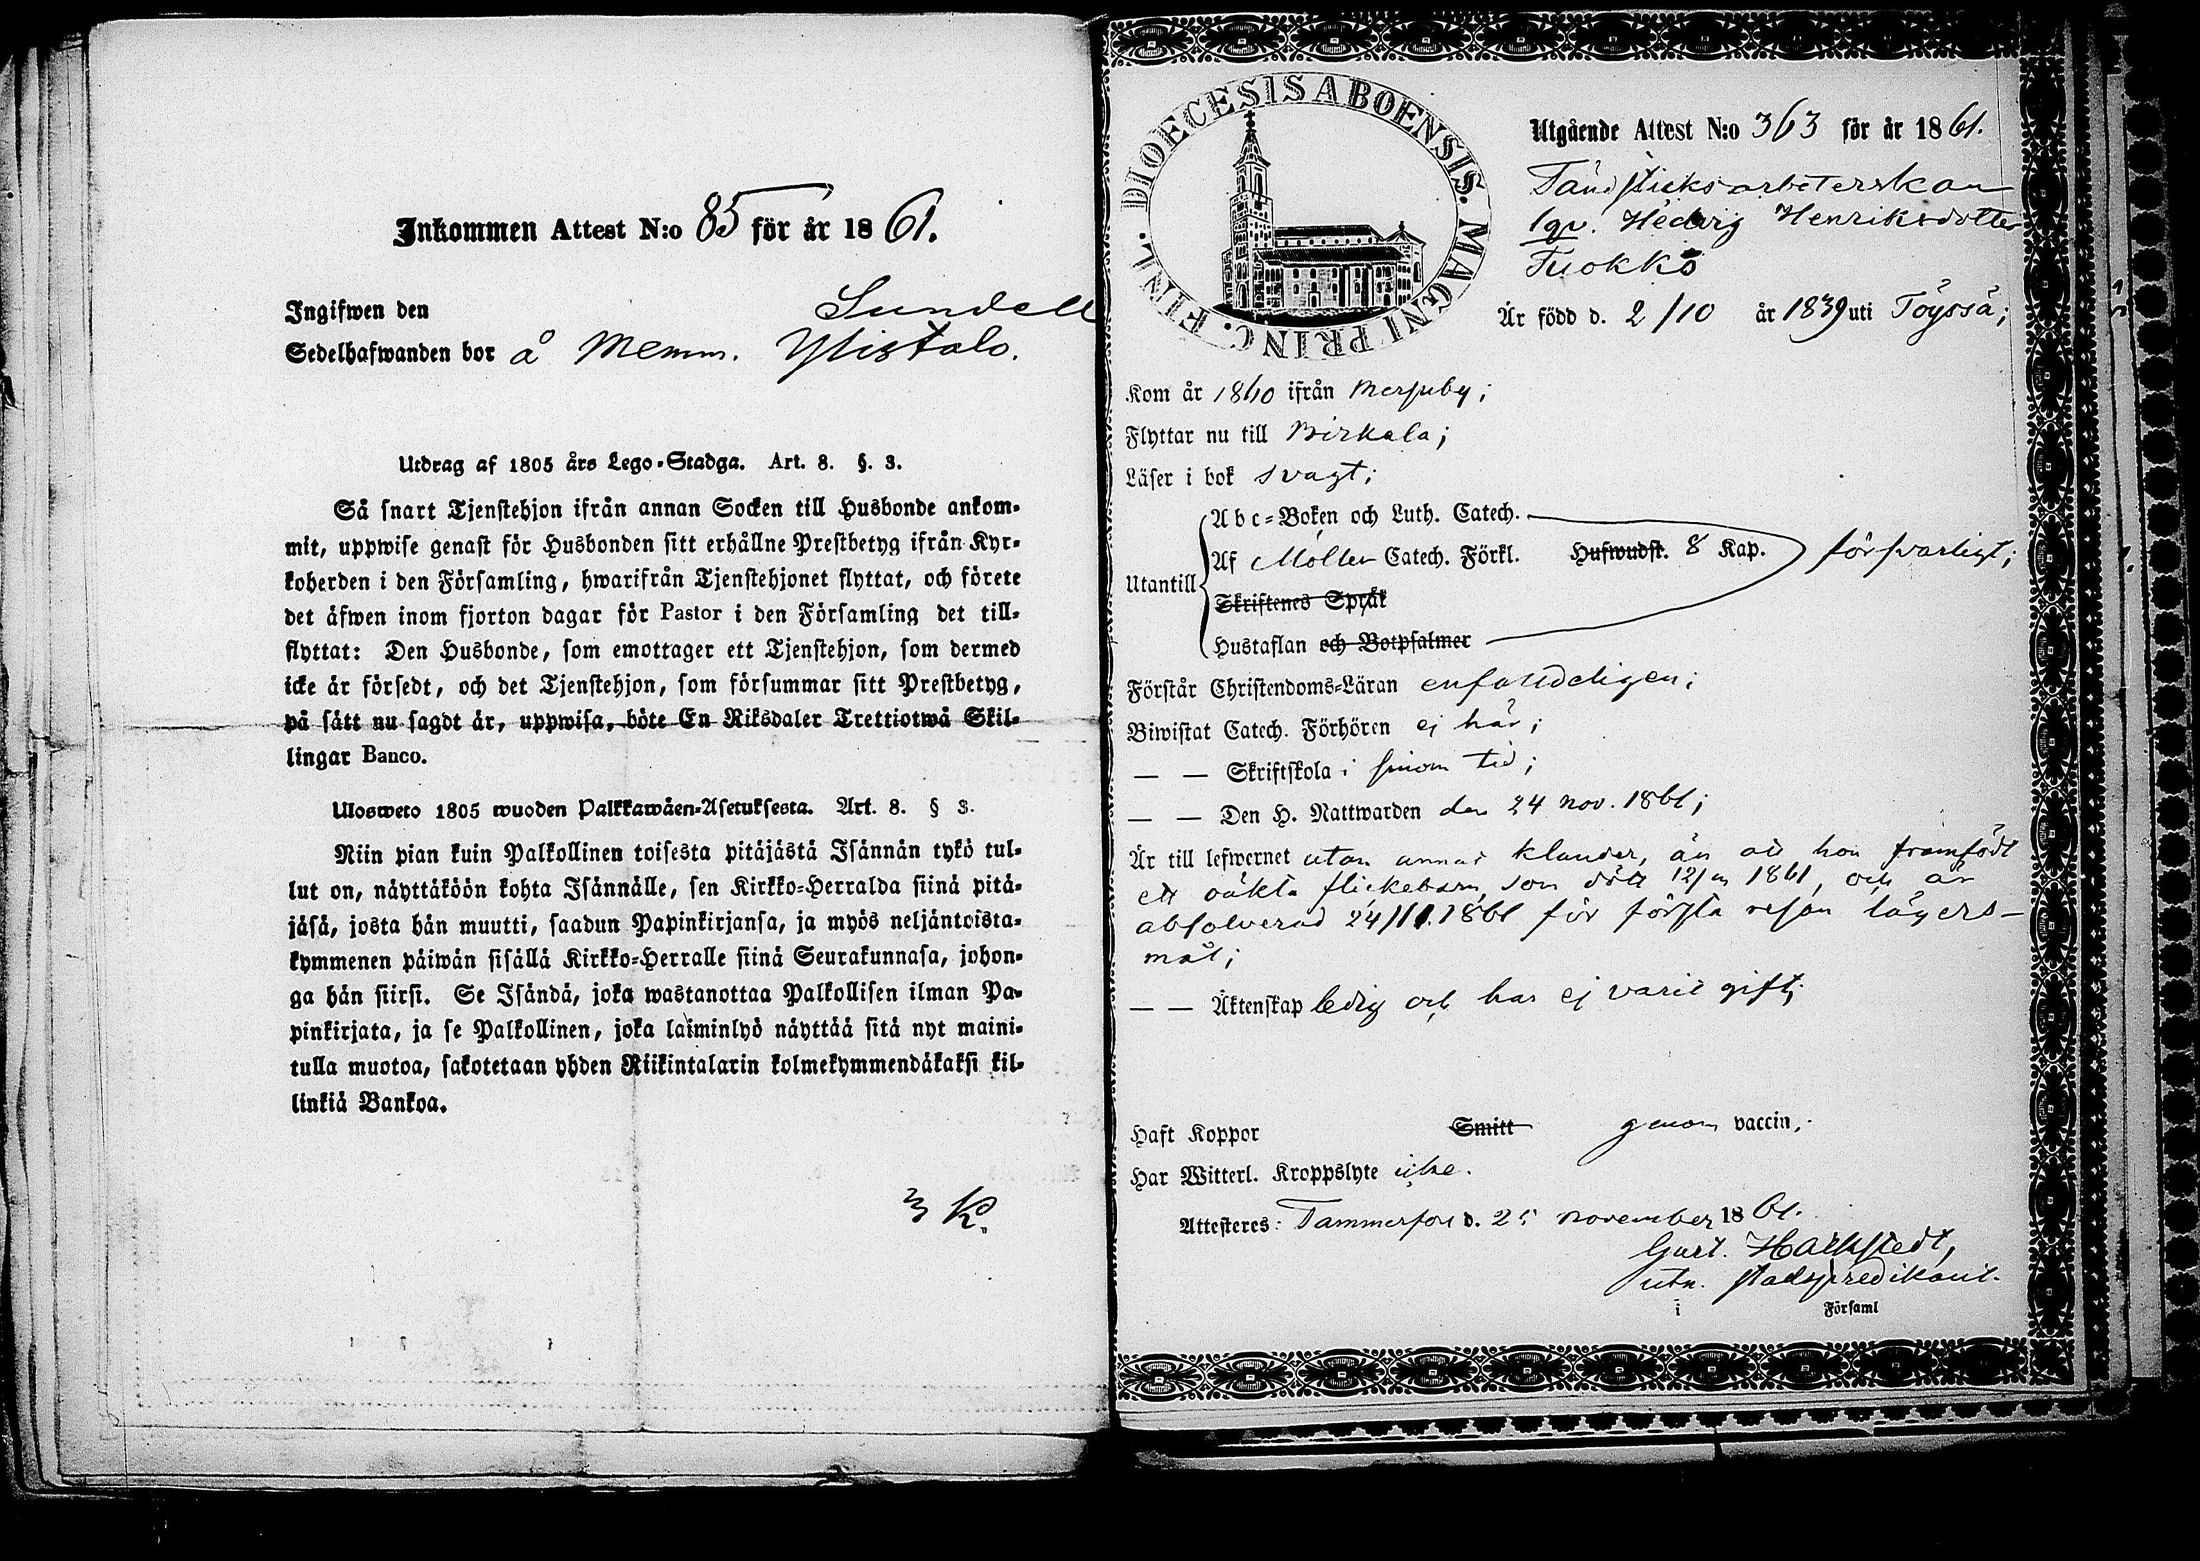 Inkommen Attest N:o 85 för år 1861.
Ingifwen den
Sundell
Sedelhafwanden bor å Memm. Ylistalo.
Utdrag af 1805 års Lego-Stadga. Art. 8. §. 3.
Så snart Tjenstehjon ifrån annan Socken till Husbonde ankom-
mit, uppwise genast för Husbonden sitt erhållne Prestbetyg ifrån Kyr-
koherden i den Församling, hwarifrån Tjenstehjonet flyttat, och förete
det äfwen inom fjorton dagar för Pastor i den Församling det till-
flyttat: Den Husbonde, som emottager ett Tjenstehjon, som dermed
icke är försedt, och det Tjenstehjon, som försummar sitt Prestbetyg,
på sätt nu sagdt är, uppwisa, böte En Riksdaler Trettiotwå Skil-
lingar Banco.
Ulosweto 1805 wuoden Palkkawäen-Asetuksesta. Art. 8. § 3.
Niin pian kuin Palkollinen toisesta pitäjästä Isännän tykö tul-
lut on, näyttäköön kohta Isännälle, sen Kirkko-Herralda siinä pitä-
jäsä, josta hän muutti, saadun Papinkirjansa, ja myös neljäntoista-
kymmenen päiwän sisällä Kirkko-Herralle siinä Seurakunnasa, johon-
ga hän siirsi. Se Isändä, joka wastanottaa Palkollisen ilman Pa-
pinkirjata, ja se Palkollinen, joka laiminlyö näyttää sitä nyt maini-
tulla muotoa, sakotetaan yhden Riikintalarin kolmekymmendäkaksi kil-
linkiä Bankoa.
3 K.
DIOECESIS ABOENSIS. MAGNI PRINC. FINL.
Utgående Attest N:o 363 för år 1861.
Tändsticksarbeterskan
Hedvig Henriksdotter
Tuokko
Är född d. 2/10 år 1839 uti Töyssä;
Kom år 1860 ifrån Messuby;
Flyttar nu till Birkala;
Läser i bok svagt;
Utantill
Abc-Boken och Luth. Catech.
Af Möller Catech. Förkl. Hufwudst. 8 Kap. försvarligt;
Skriftenes Språk
Hustaflan och Botpsalmer
Förstår Christendoms-Läran enfaldeligen;
Biwistat Catech. Förhören ej här;
— — Skriftskola i sinom tid;
— — Den H. Nattwarden den 24 nov. 1861;
Är till lefwernet utan annat klander, än att hon framfödt
ett oäkta flickebarn, som dött 1861, och är
absolverad 24/11. 1861 för första resan lägers-
mål;
— — Äktenskap ledig och har ej varit gift;
Haft Koppor Smitt genom vaccin,
Har Witterl. Kroppslyte icke.
Attesteres: Tammerfors d. 25 november 1861.
Gust.
stadspredikant.
i Församl